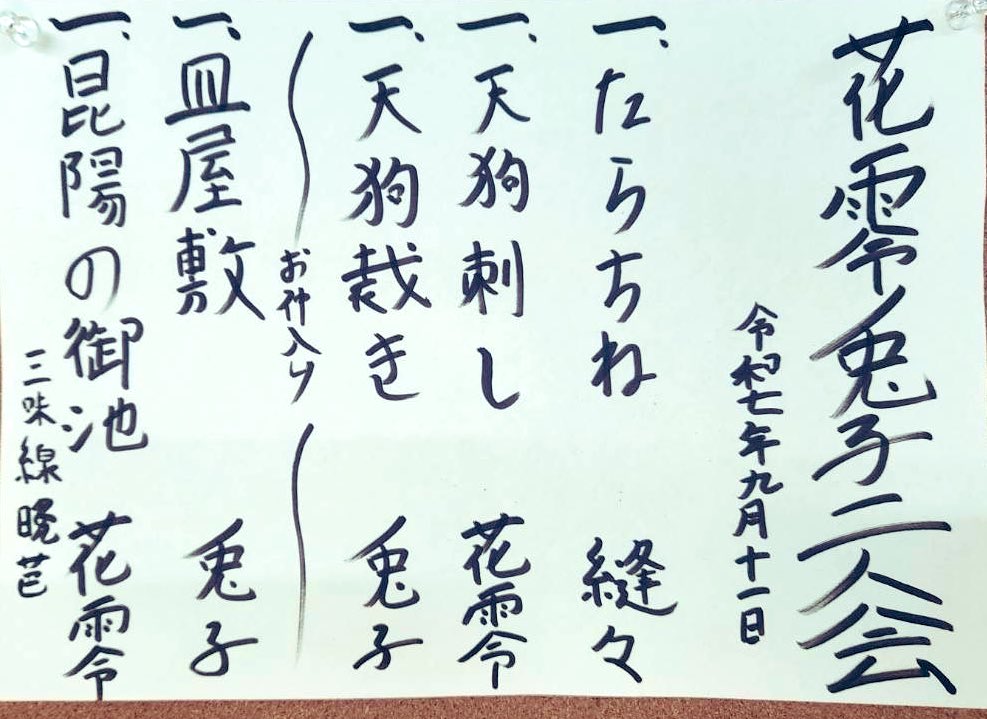 花零兎子二人会
令和七年九月十一日
一、たらちね 縫々
一、天狗刺し 花零
一、天狗裁き 兎子
お仲入り
一、皿屋敷 兎子
一、昆陽の御池 花零
三味線 晩芭